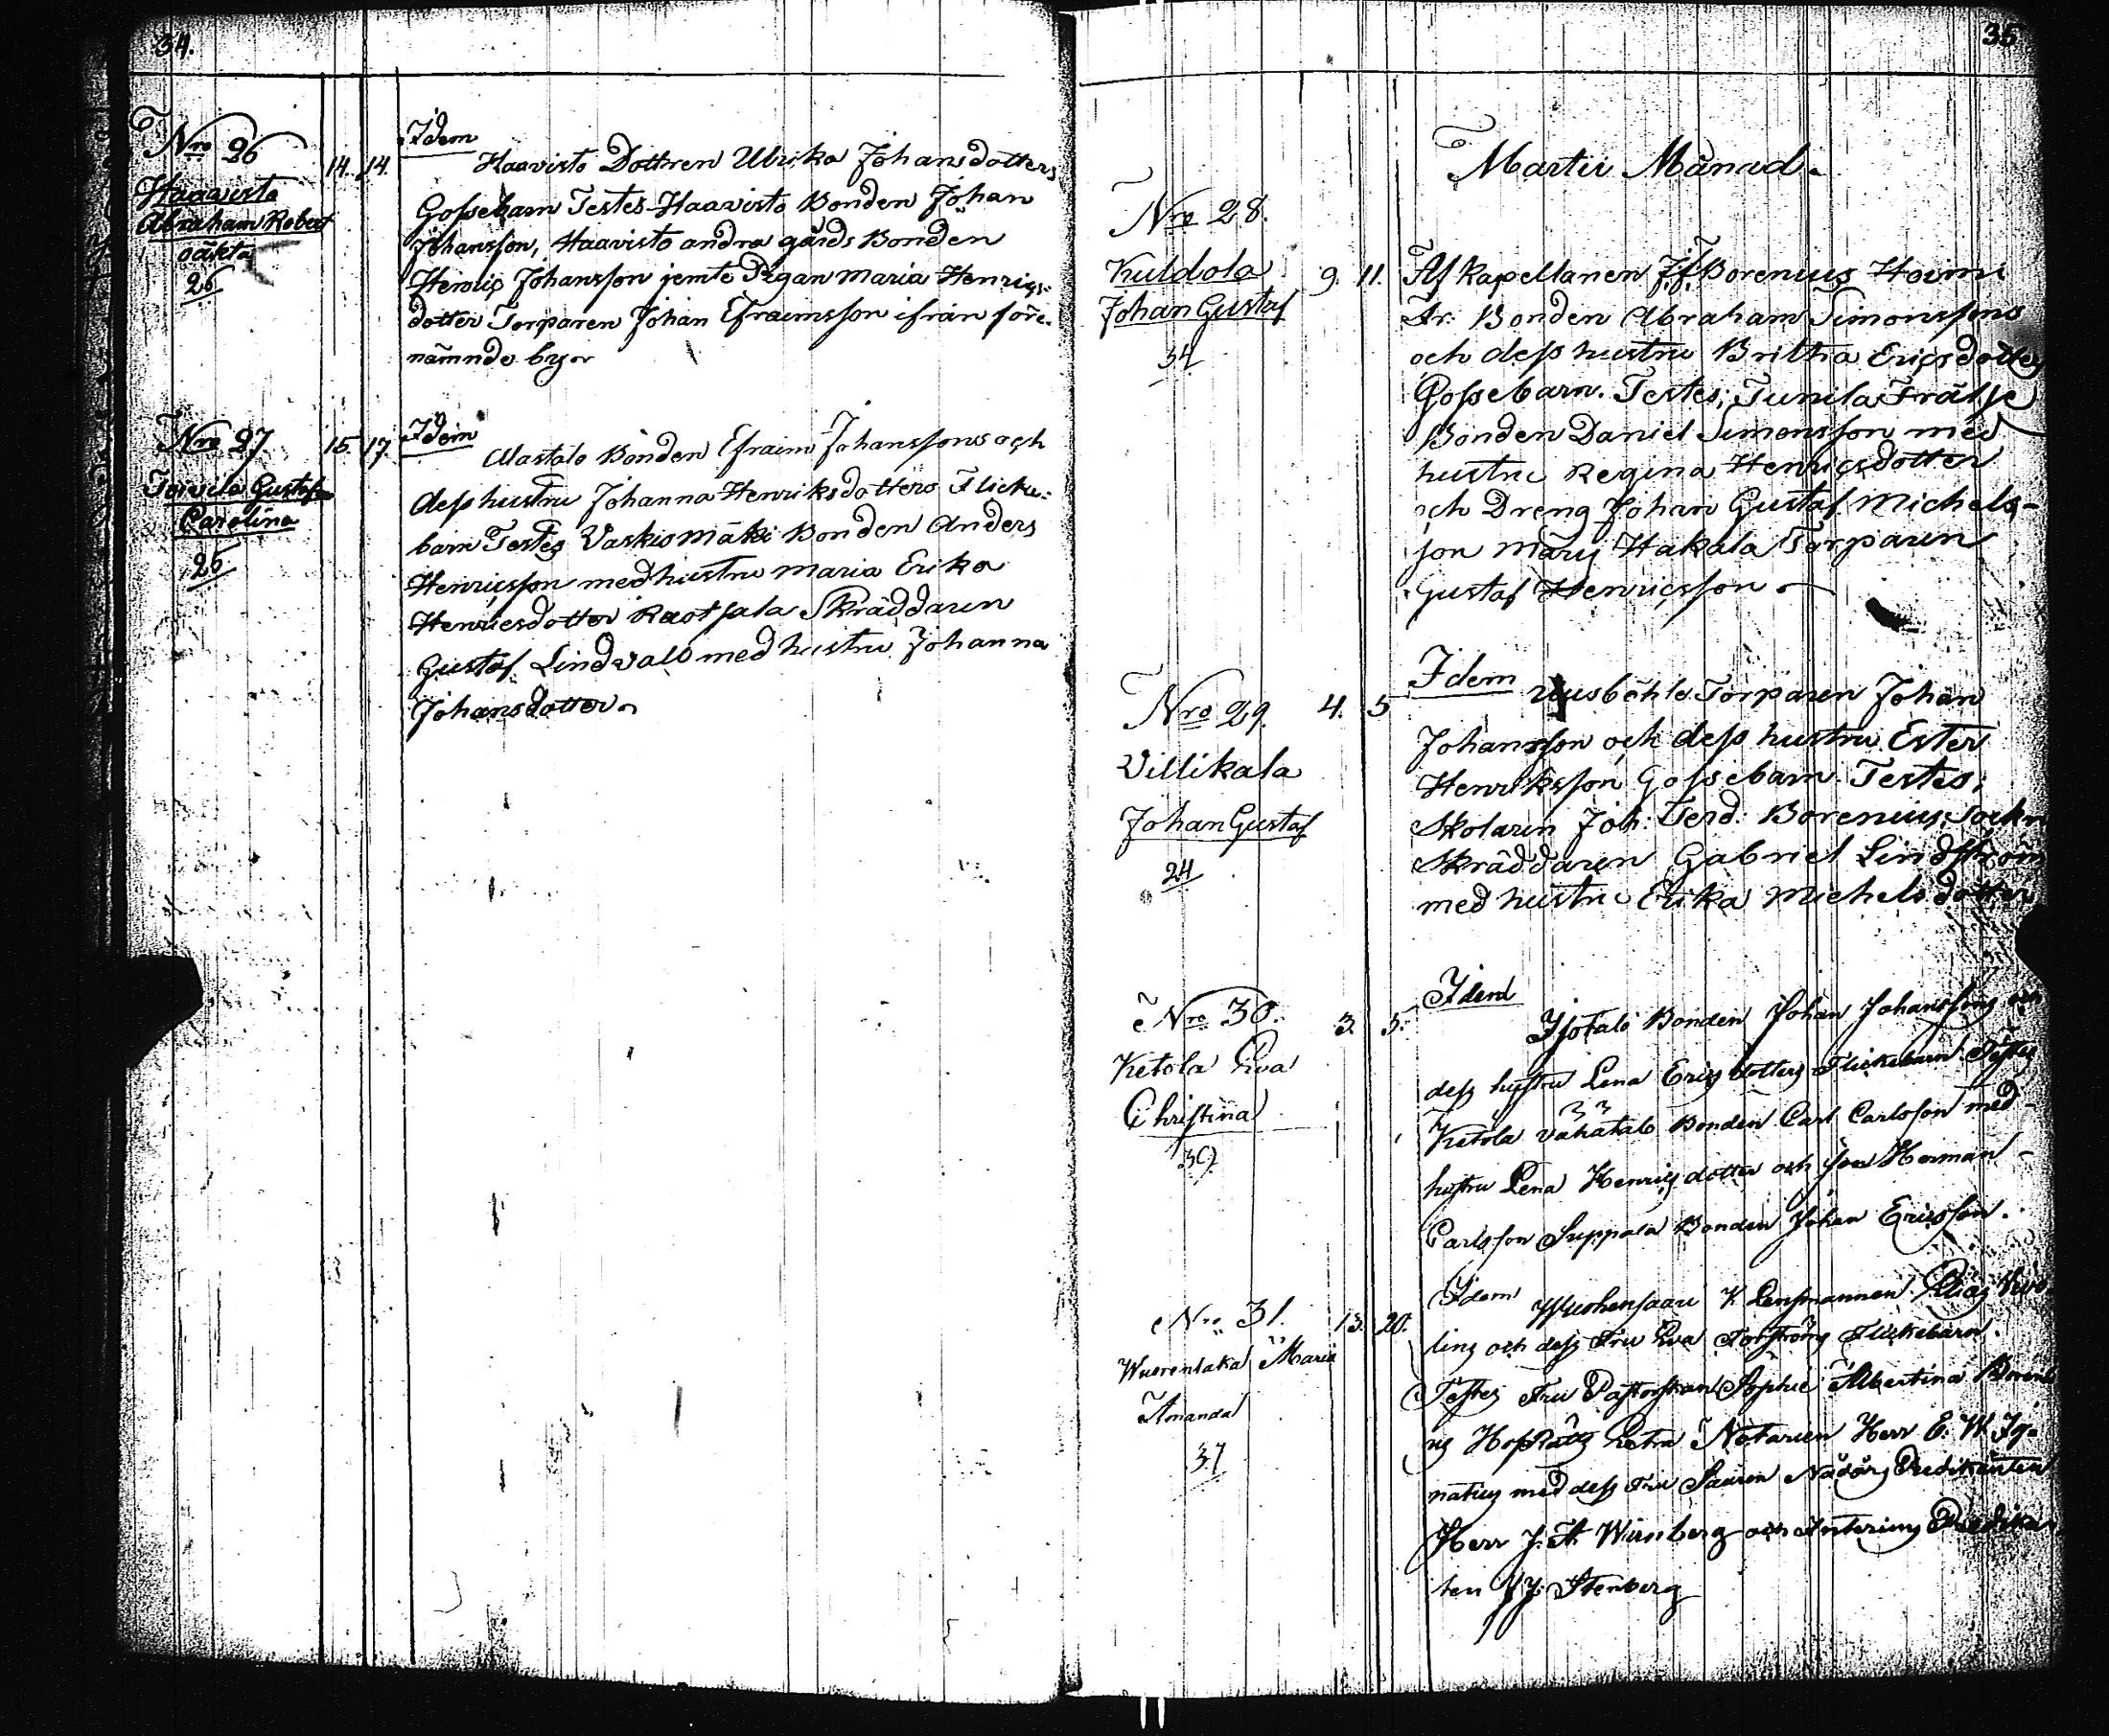 34.
Nro 26
Haavisto
Abraham Robert
oäkta
26
14. 14.
Idem
Haavisto Dottren Ulrika Johansdotters
Gossebarn Testes Haavisto Bonden Johan
Johansson, Haavisto andra gårds Bonden
Henric Johansson jemte Pigan Maria Henrics-
dotter Torparen Johan Efraimsson ifrån före-
nämnde by
Nro 27
Gustafva
Carolina
25
15. 17.
Idem
Alastalo Bonden Efraim Johanssons och
dess hustru Johanna Henriksdotters Flicke-
barn Testes Vaskiomäki Bonden Anders
Henricsson med hustru Maria Erika
Henricsdotter Raotsala Skräddaren
Gustaf Lindvall med hustru Johanna
Johansdotter
35
Martii Månad.
Nro 28.
Kuldola
Johan Gustaf
34
9. 11.
Af Kapellanen J.F. Borenius
Bonden Abraham Simonssons
och dess hustru Britha Ericsdotters
Gossebarn. Testes; Tunila Frälse
Bonden Daniel Simonsson med
hustru Regina Henricsdotter
och Dreng Johan Gustaf Michels-
son Hakala Torparen
Gustaf Henricsson
Nro 29.
Villikala
Johan Gustaf
24
4. 5
Idem
Torparen Johan
Johansson och dess hustru Ester
Henriksson Gossebarn. Testes;
Skolaren Joh: Ferd: Borenius, Sockn
Skräddaren Gabriel Lindström
med hustru Erika Michelsdotter
Nro 30.
Ketola Eva
Christina
3. 5.
Idem
Isotalo Bonden Johan Johanssons och
dess hustru Lena Ericsdotters Flickebarn. Testes
Ketola Vähätalo Bonden Carl Carlsson med
hustru Lena Henricsdotter och son Herman
Carlsson Suppala Bonden Johan Ericsson.
Nro 31.
Maria
Amanda
37
13. 20.
Idem
K Lensmannen Elias
ling och dess Fru Eva Torströms Flickebarn.
Testes Fru Pastorskan Sophie Albertina Boreni
us Hofrätts Notarien Herr E. W. Ig-
natius med dess Fru Nådårs Predikanten
Herr J. A. Wirnberg och Interims Predikan
ten J J. Stenberg